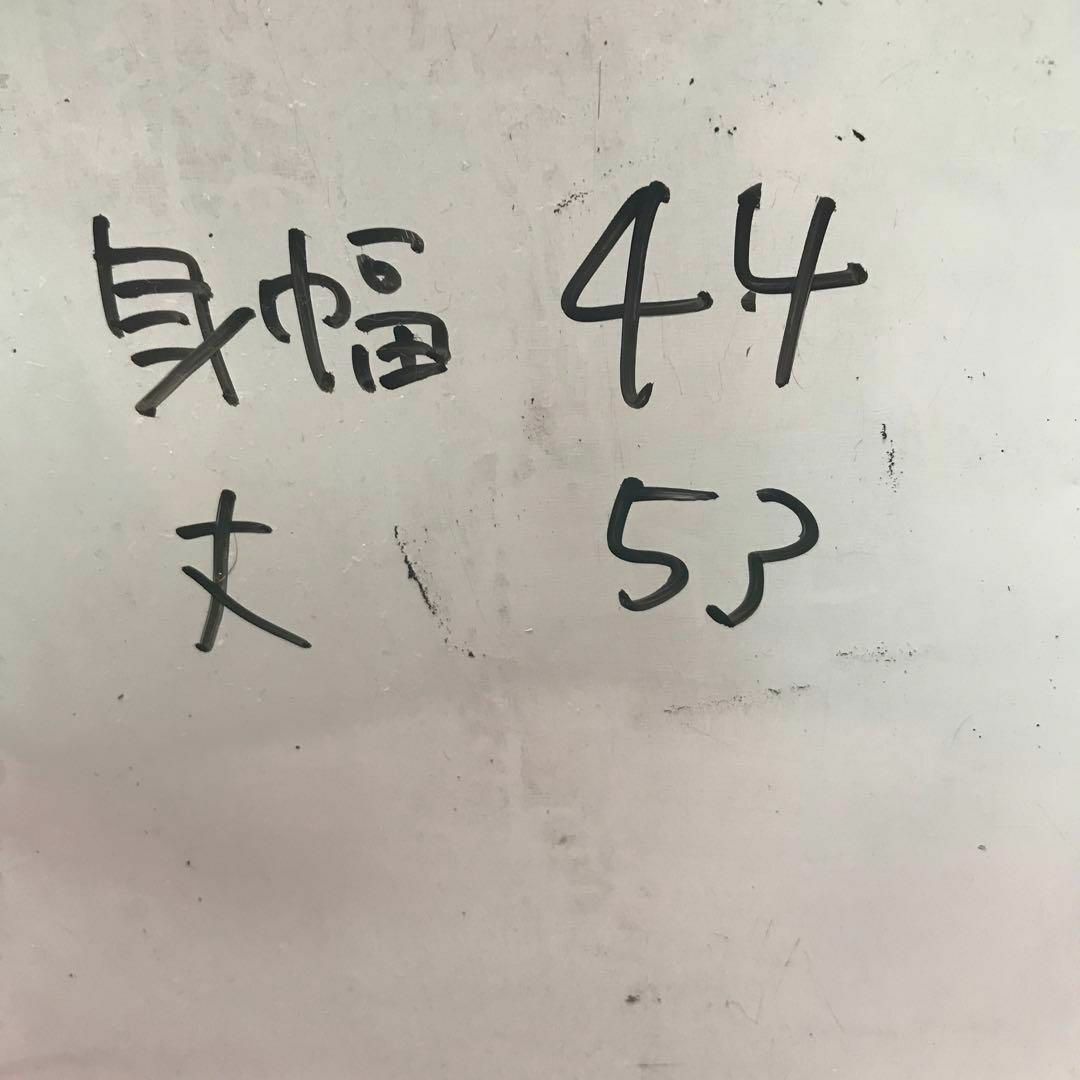 身幅 44
丈 53